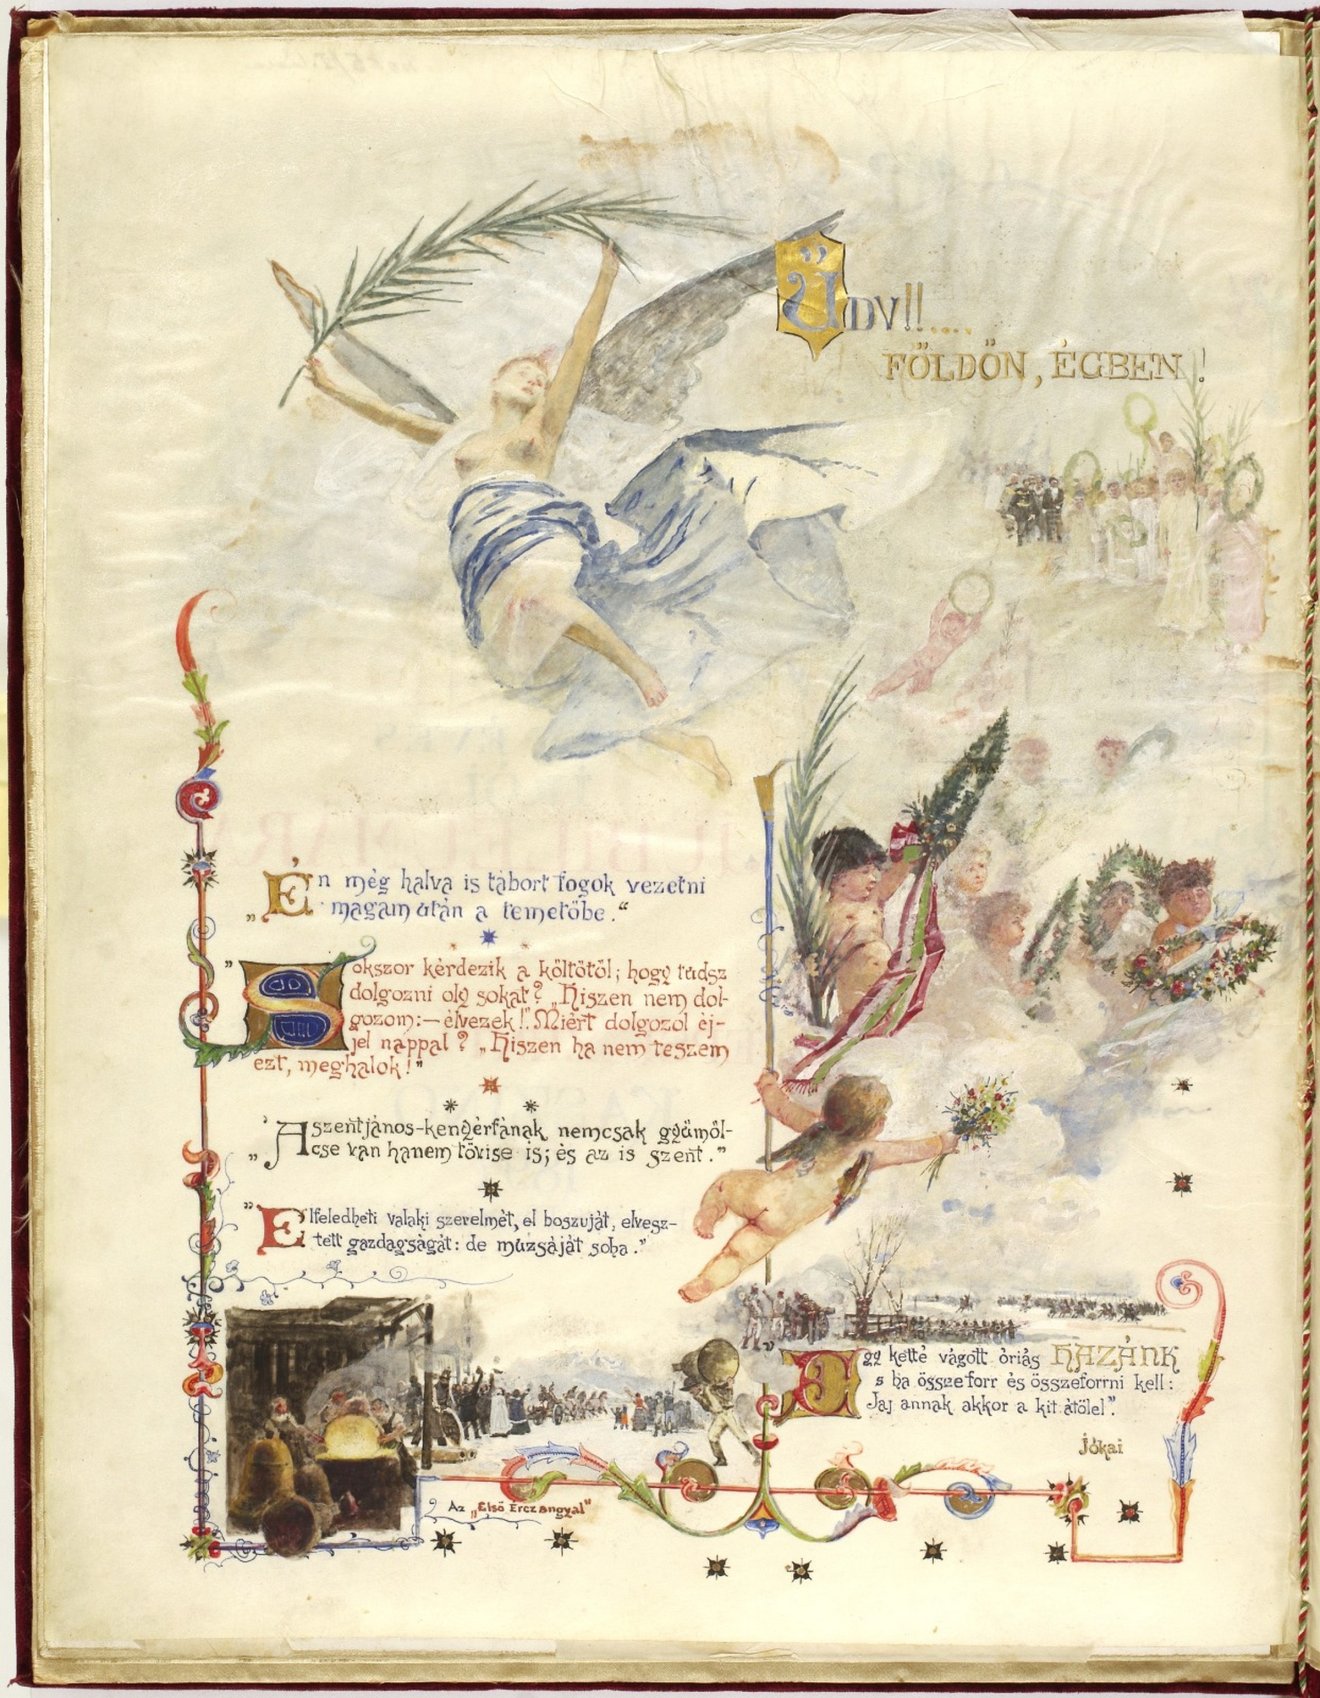 ÜDV!!....
FÖLDÖN, ÉGBEN!
„Én még halva is tábort fogok vezetni
magam után a temetőbe.“
"Sokszor kérdezik a költőtől; hogy tudsz
dolgozni oly sokat? „Hiszen nem dol-
gozom:—élvezek!" Miért dolgozol éj-
jel nappal? „Hiszen ha nem teszem
ezt, meghalok!"
„A szentjános-kenyérfának nemcsak gyümöl-
cse van hanem tövise is; és az is szent."
"Elfeledheti valaki szerelmét, el boszuját, elvesz-
tett gazdagságát: de muzsáját soha."
"Egy ketté vágott óriás HAZÁNK
s ha összeforr és összeforrni kell:
Jaj annak akkor a kit átölel".
Jókai
Az „Első Érczangyal"